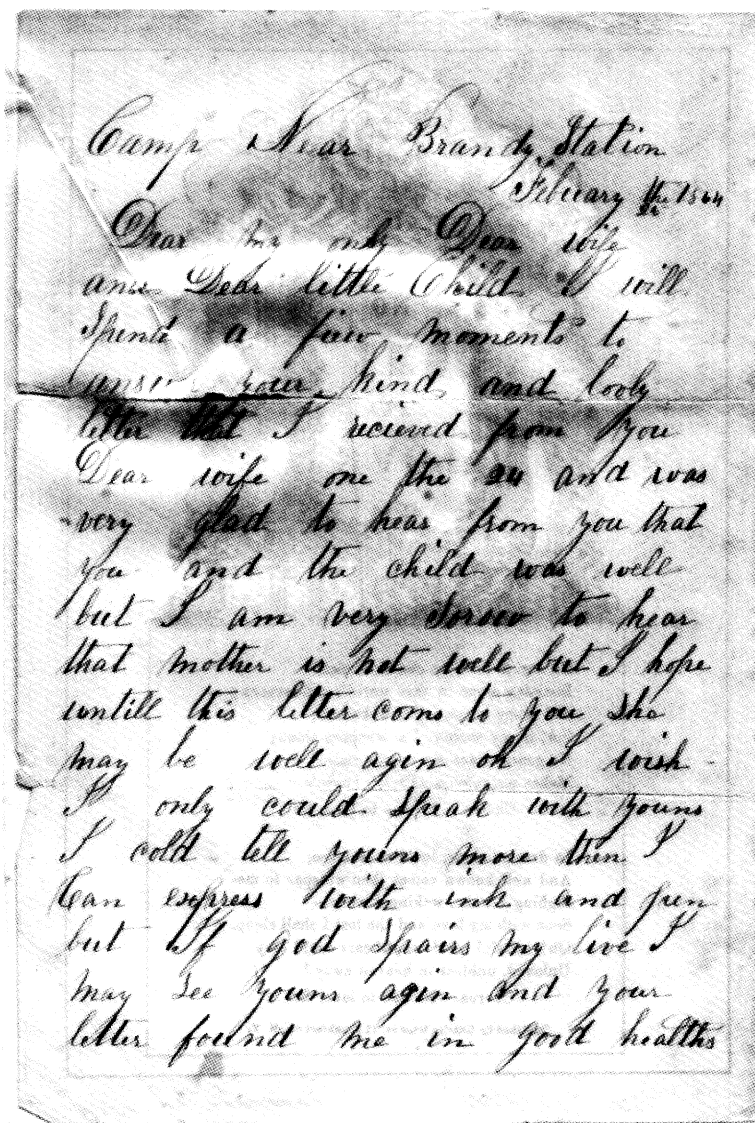 Camp Near Brandy Station
Febuary the 1864
Dear my only Dear wife
and Dear little Child I will
Spend a fiew moments to
answer your kind and lovly
letter that I recieved from you
Dear wife one the 24 and was
very glad to hear from you that
you and the child was well
but I am very Sorow to hear
that mother is not well but I hope
untill this letter coms to you She
may be well agin oh I wish
I only could Speak with youns
I cold tell youns more then I
Can express with ink and pen
but If god Spairs my live I
may See youns agin and your
letter found me in good healths